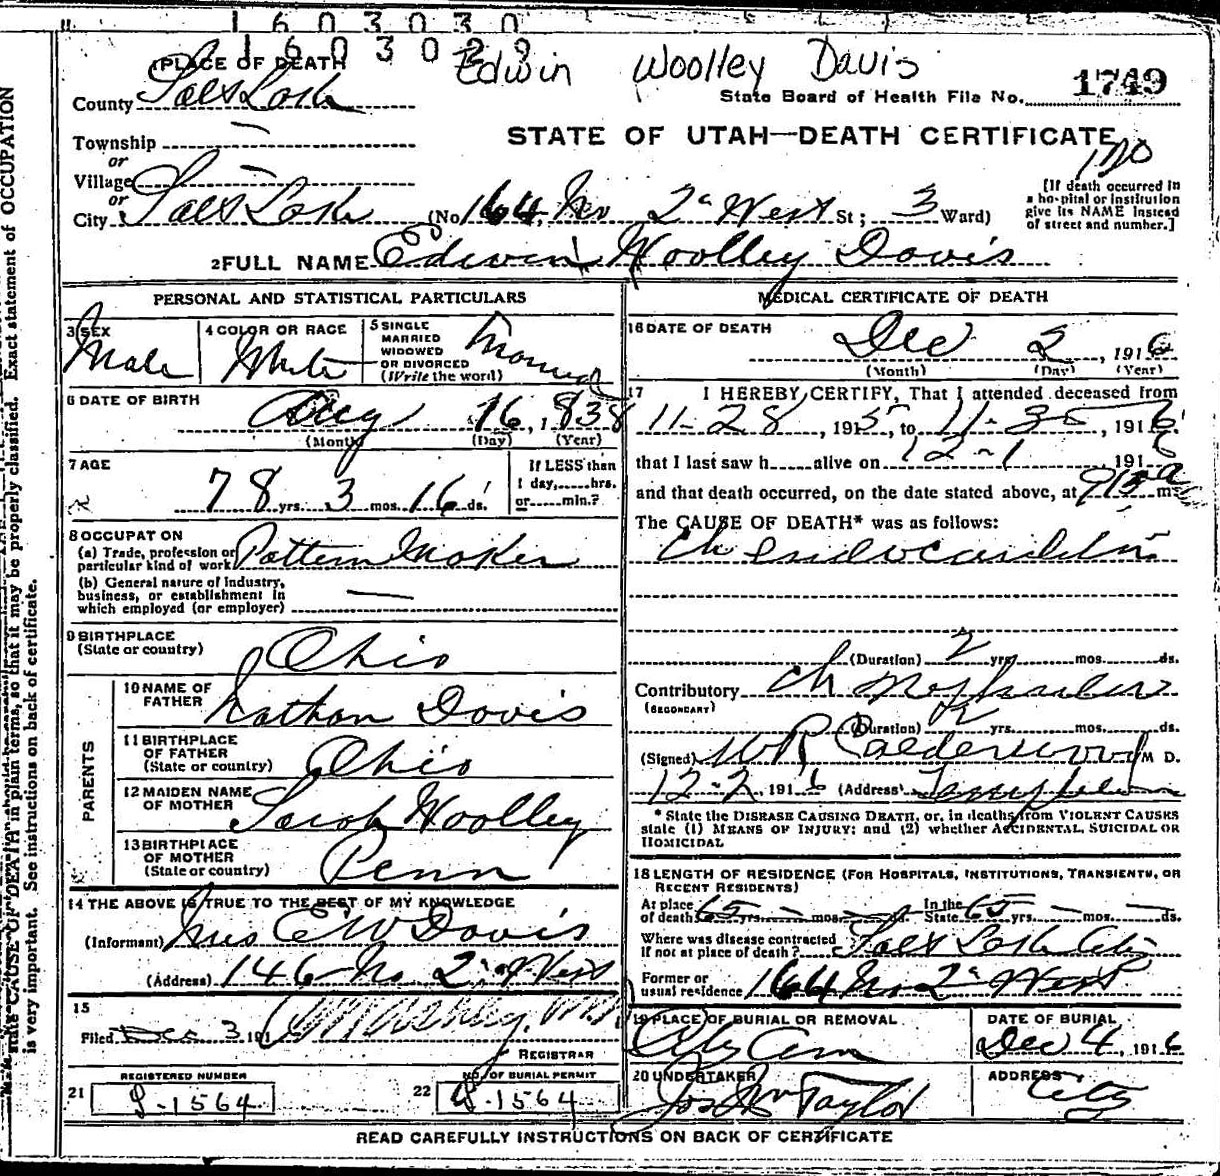 1 6 0 3 0 3 0
1 6 0 3 0 2 9
Edwin Woolley Davis
1 PLACE OF DEATH
State Board of Health File No. 1749
County Salt Lake
STATE OF UTAH—DEATH CERTIFICATE
Township —
or
Village —
or
City Salt Lake (No. 164 No 2d West St; 3 Ward)
[If death occurred in
a hospital or institution
give its NAME instead
of street and number.]
2 FULL NAME Edwin Woolley Davis
PERSONAL AND STATISTICAL PARTICULARS
3 SEX
Male
4 COLOR OR RACE
White
5 SINGLE
MARRIED
WIDOWED
OR DIVORCED
(Write the word)
Married
6 DATE OF BIRTH
Aug 16, 1838
(Month) (Day) (Year)
7 AGE
78 yrs. 3 mos. 16 ds.
If LESS than
1 day,......hrs.
or......min.?
8 OCCUPATION
(a) Trade, profession or
particular kind of work Pattern Maker
(b) General nature of industry,
business, or establishment in
which employed (or employer) —
9 BIRTHPLACE
(State or country) Ohio
PARENTS
10 NAME OF
FATHER Nathan Davis
11 BIRTHPLACE
OF FATHER
(State or country) Ohio
12 MAIDEN NAME
OF MOTHER Sarah Woolley
13 BIRTHPLACE
OF MOTHER
(State or country) Penn
14 THE ABOVE IS TRUE TO THE BEST OF MY KNOWLEDGE
(Informant) Mrs E W Davis
(Address) 146 No 2d West
15
Filed Dec 3 191
REGISTRAR
REGISTERED NUMBER
21 1564
NO. OF BURIAL PERMIT
22 1564
MEDICAL CERTIFICATE OF DEATH
16 DATE OF DEATH
Dec 2, 1916
(Month) (Day) (Year)
17 I HEREBY CERTIFY, That I attended deceased from
11-28, 1915, to 11-30, 1916
that I last saw h......alive on 12-1 1916
and that death occurred, on the date stated above, at 915 a m.
The CAUSE OF DEATH* was as follows:
Ch endocarditis
(Duration) 2 yrs. mos. ds.
Contributory Ch
(SECONDARY)
(Duration) 2 yrs. mos. ds.
(Signed) W R Calderwood M D.
12-2, 1916 (Address) Templeton
* State the DISEASE CAUSING DEATH, or, in deaths from VIOLENT CAUSES
state (1) MEANS OF INJURY; and (2) whether ACCIDENTAL, SUICIDAL OR
HOMICIDAL
18 LENGTH OF RESIDENCE (FOR HOSPITALS, INSTITUTIONS, TRANSIENTS, OR
RECENT RESIDENTS)
At place
of death 65 yrs. — mos. — ds. In the State 65 yrs. — mos. — ds.
Where was disease contracted
If not at place of death? Salt Lake City
Former or
usual residence 164 No 2d West
19 PLACE OF BURIAL OR REMOVAL
City Cem
DATE OF BURIAL
Dec 4, 1916
20 UNDERTAKER
Jos Wm Taylor
ADDRESS
City
READ CAREFULLY INSTRUCTIONS ON BACK OF CERTIFICATE
state CAUSE OF DEATH in plain terms, so that it may be properly classified. Exact statement of OCCUPATION
is very important. See instructions on back of certificate.